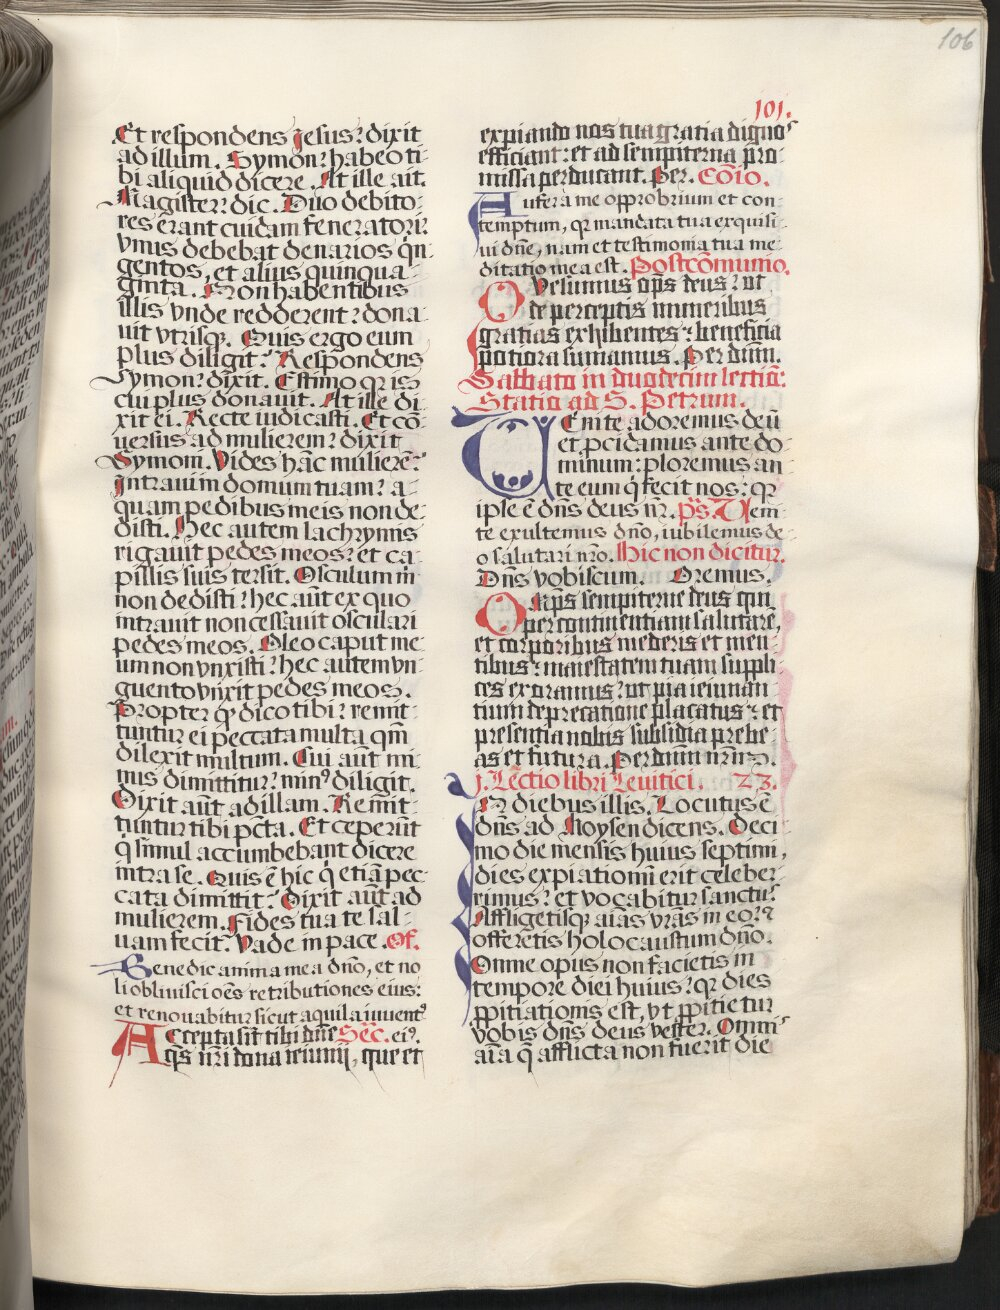 106
101.
Et respondens Jesus: dixit
ad illum. Symon: habeo ti-
bi aliquid dicere. At ille ait.
Magister: dic. Duo debito-
res erant cuidam feneratori:
vnus debebat denarios q̃n
gentos, et alius quinqua-
ginta. Non habentibus
illis vnde redderent: dona-
uit vtrisq. Quis ergo eum
plus diligit: Respondens
Symon: dixit. Estimo qr is
cui plus donauit. At ille di-
xit ei. Recte iudicasti. Et cõ-
uersus ad mulierem: dixit
Symoni. Vides hãc mulierẽ:
Intraui in domum tuam: a-
quam pedibus meis non de-
disti. Hec autem lachrymis
rigauit pedes meos: et ca-
pillis suis tersit. Osculum m̃
non dedisti: hec aũt ex quo
intrauit non cessauit osculari
pedes meos. Oleo caput me-
um non vnxisti: hec autem vn-
guento vnxit pedes meos.
Propter qd̃ dico tibi: remit-
tuntur ei peccata multa qm̃
dilexit multum. Cui aũt mi-
nus dimittitur: min⁹ diligit.
Dixit aũt ad illam. Remit-
tuntur tibi pc̃ta. Et ceperũt
q̃ simul accumbebant dicere
intra se. Quis ẽ hic q̃ etiã pec-
cata dimittit: Dixit aũt ad
mulierem. Fides tua te sal-
uam fecit: Vade in pace. Of.
Benedic anima mea dño, et no
li obliuisci oẽs retributiones eius:
et renouabitur sicut aquila iuuent⁹
Accepta sit tibi dñe Sec. ei⁹.
q̃s nr̃i dona ieiunij, que et
expiando nos tua gratia dignos
efficiant: et ad sempiterna pro-
missa perducant. Per. Cõio.
Aufer a me opprobrium et con-
temptum, qr mandata tua exquisi-
ui dñe, nam et testimonia tua me-
ditatio mea est. Postcõmunio.
Qvesumus op̃s deus: ut
de perceptis muneribus
gratias exhibentes: beneficia
potiora sumamus. Per dñm.
Sabbato in duodecim lectiõ:
Statio ad S. Petrum.
VEnite adoremus deũ
et pcidamus ante do-
minum: ploremus an-
te eum q̃ fecit nos: qr
ipse ẽ dñs deus nr̃. p̃s. Veni-
te exultemus dño, iubilemus de-
o salutari nr̃o. Hic non dicitur.
Dñs vobiscum. Oremus.
Omp̃s sempiterne deus qui
per continentiam salutarẽ,
et corporibus mederis et men-
tibus: maiestatem tuam suppli-
ces exoramus: ut pia ieiunan-
tium deprecatione placatus: et
presentia nobis subsidia prebe-
as et futura. Per dñm nr̃m.
j. Lectio libri Leuitici. 23.
In diebus illis. Locutus ẽ
dñs ad Moysen dicens. Deci-
mo die mensis huius septimi,
dies expiationũ erit celeber-
rimus: et vocabitur sanctus.
Affligetisq aĩas vr̃as in eo: et
offeretis holocaustum dño.
Omne opus non facietis in
tempore diei huius: qr dies
ppitiationis est, vt ppitietur
vobis dñs deus vester. Omnis
aĩa q̃ afflicta non fuerit die